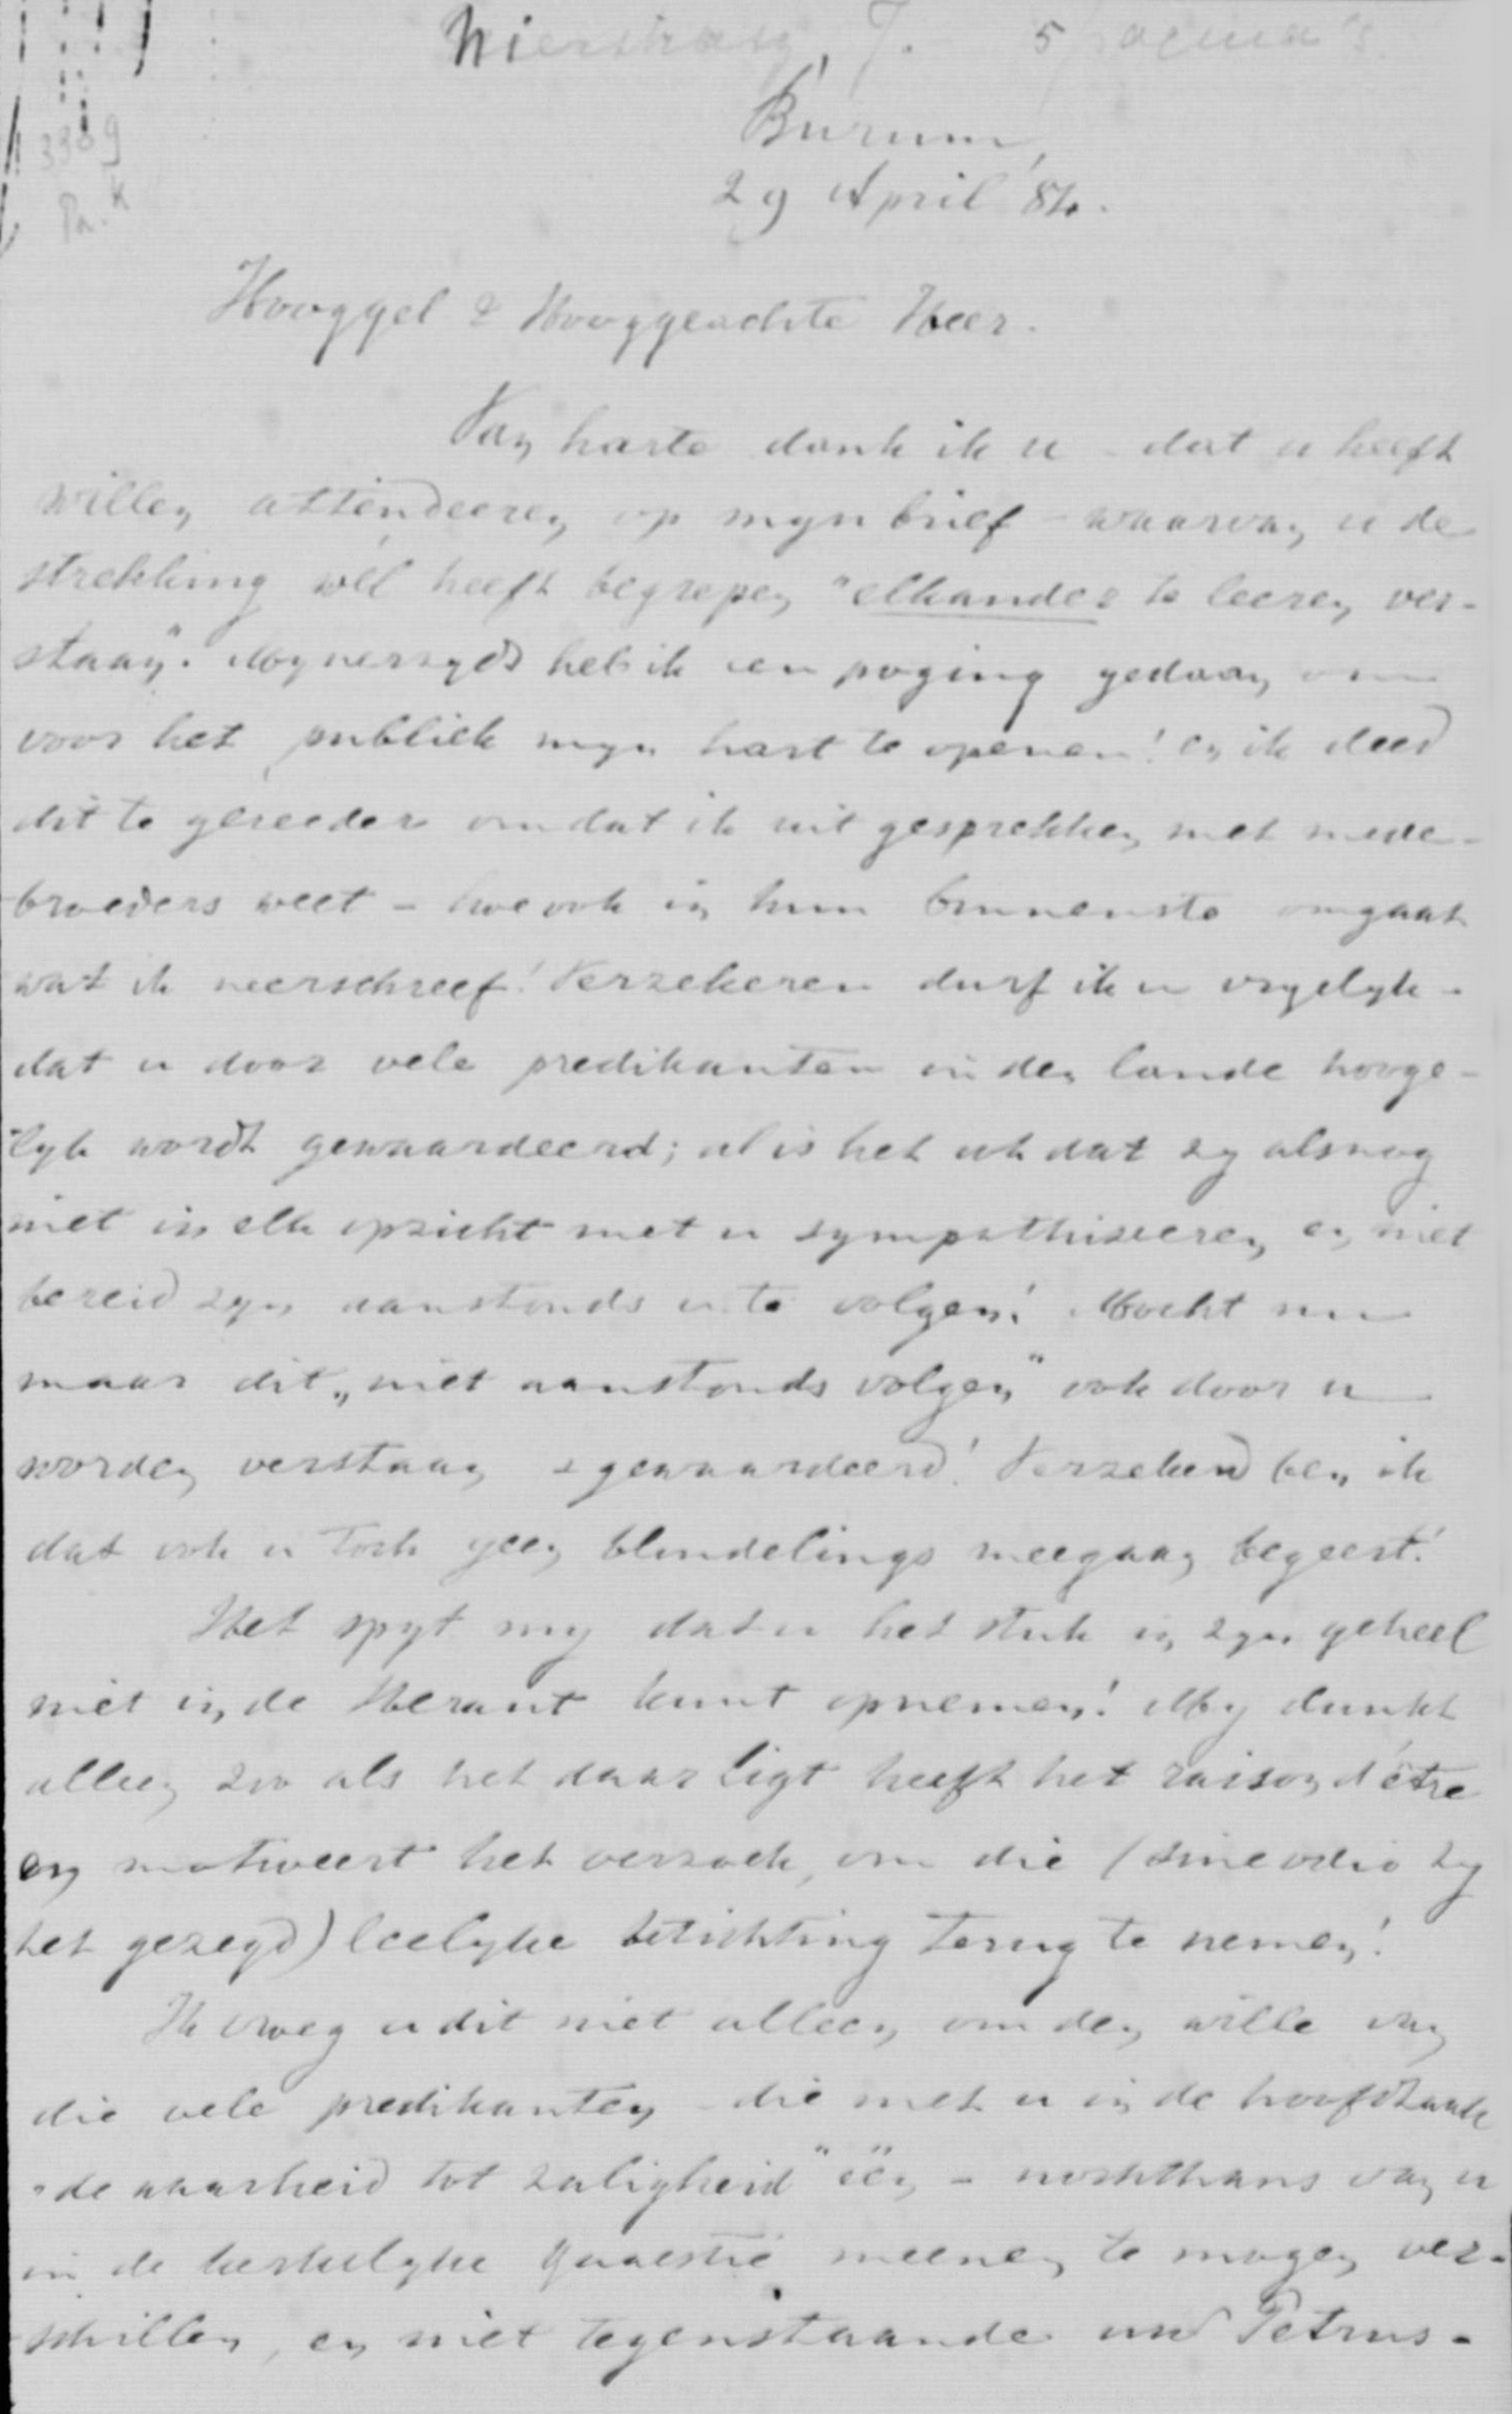 J. 5 pagina's
3389
Pa. K
Burum,
29 April '84.
Hooggel & Hooggeachte Heer.
Van harte dank ik u - dat u heeft
willen attendeeren op mijn brief - waarvan u de
strekking wèl heeft begrepen "elkander te leeren ver-
staan". Mijnerzyds heb ik een poging gedaan om
voor het publiek mijn hart te openen! en ik deed
dit te gereeder omdat ik uit gesprekken met mede-
broeders weet - hoe ook in hun binnenste omgaat
wat ik neerschreef! Verzekeren durf ik u vryelyk -
dat u door vele predikanten in den lande hooge-
lyk wordt gewaardeerd; al is het ook dat zy alsnog
niet in elk opzicht met u sympathiseeren en niet
bereid zyn aanstonds u te volgen! Mocht nu
maar dit „niet aanstonds volgen" ook door u
worden verstaan & gewaardeerd! Verzekerd ben ik
dat ook u toch geen blindelings meegaan begeert!
Het spyt my dat u het stuk in zyn geheel
niet in de Heraut kunt opnemen! My dunkt
alleen zoo als het daar ligt heeft het raison d'être
en motiveert het verzoek, om die (sine odio zy
het gezegd) leelyke betichting terug te nemen!
Ik vroeg u dit niet alleen om den wille van
die vele predikanten - die met u in de hoofdzaak
"de waarheid tot zaligheid" één - nochthans van u
in de kerkelyke quaestie meenen te mogen ver-
schillen, en niet tegenstaande uw Petrus-